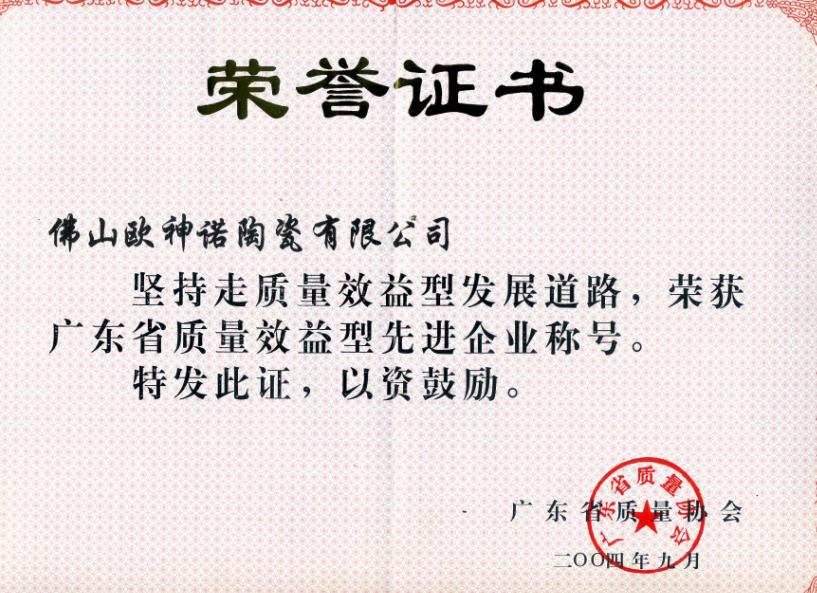 荣誉证书
佛山欧神诺陶瓷有限公司
坚持走质量效益型发展道路，荣获
广东省质量效益型先进企业称号。
特发此证，以资鼓励。
广东省质量协会
广东省质量协会
二〇〇四年九月